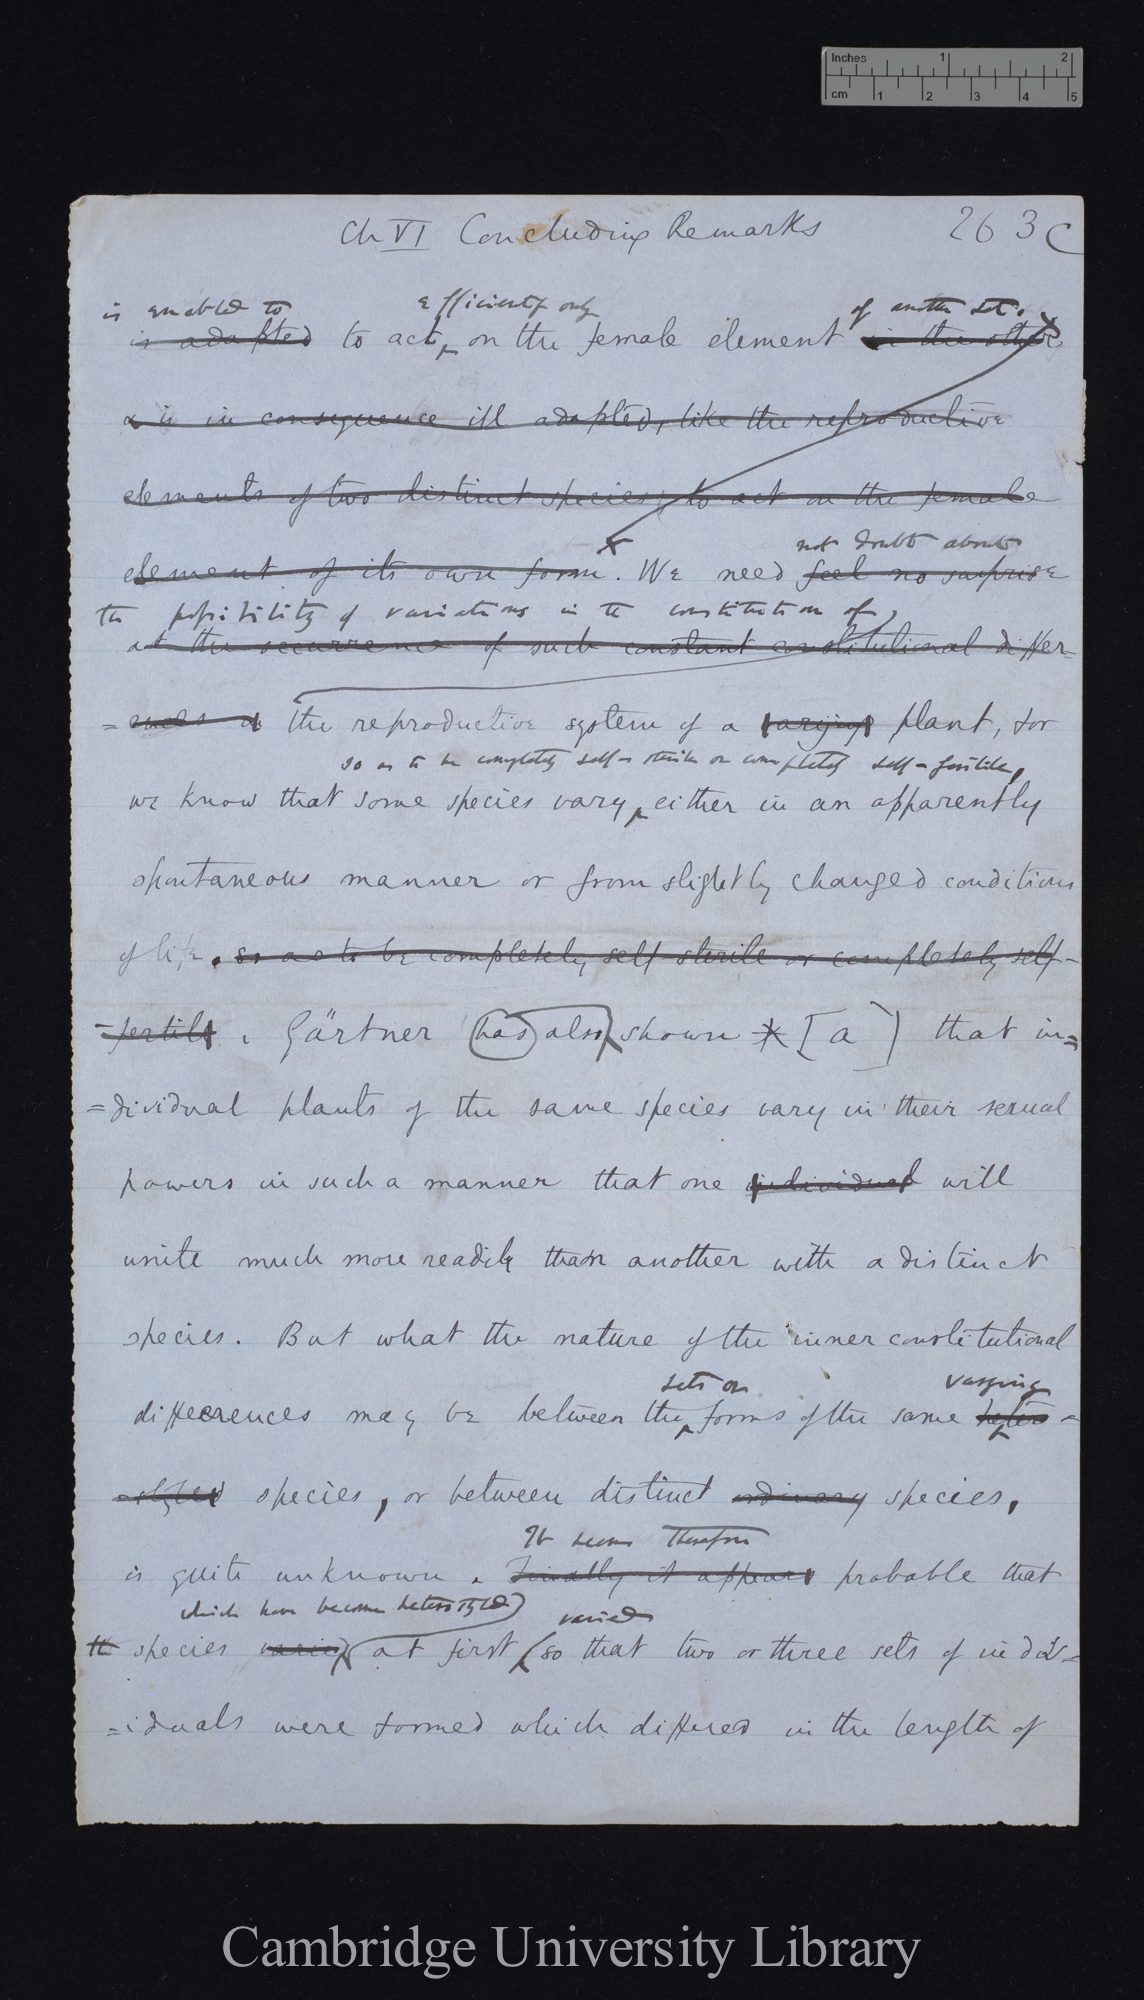 Inches 1 2
cm 1 2 3 4 5
Ch VI Concluding Remarks 263c
is enabled to efficiently only of another set.
is adapted to act on the female element in the other
& is in consequence ill adapted, like the reproductive
elements of two distinct species, to act on the female
element of its own form. We need feel no surprise
not doubt about
the possibility of variations in the constitution of
at the occurrence of such constant constitutional differ-
=ences in the reproductive system of a varying plant, for
so as to be completely self-sterile or completely self-fertile,
we know that some species vary, either in an apparently
spontaneous manner or from slightly changed conditions
of life, so as to be completely self-sterile or completely self-
-fertile. Gärtner has also shown * [a] that in=
=dividual plants of the same species vary in their sexual
powers in such a manner that one individual will
unite much more readily than another with a distinct
species. But what the nature of the inner constitutional
sets or varying
differences may be between the forms of the same hetero-
-styled species, or between distinct ordinary species,
It seems therefore
is quite unknown. Finally it appears probable that
which have become heterostyled varied
the species varied at first so that two or three sets of indiv=
=iduals were formed which differed in the length of
Cambridge University Library